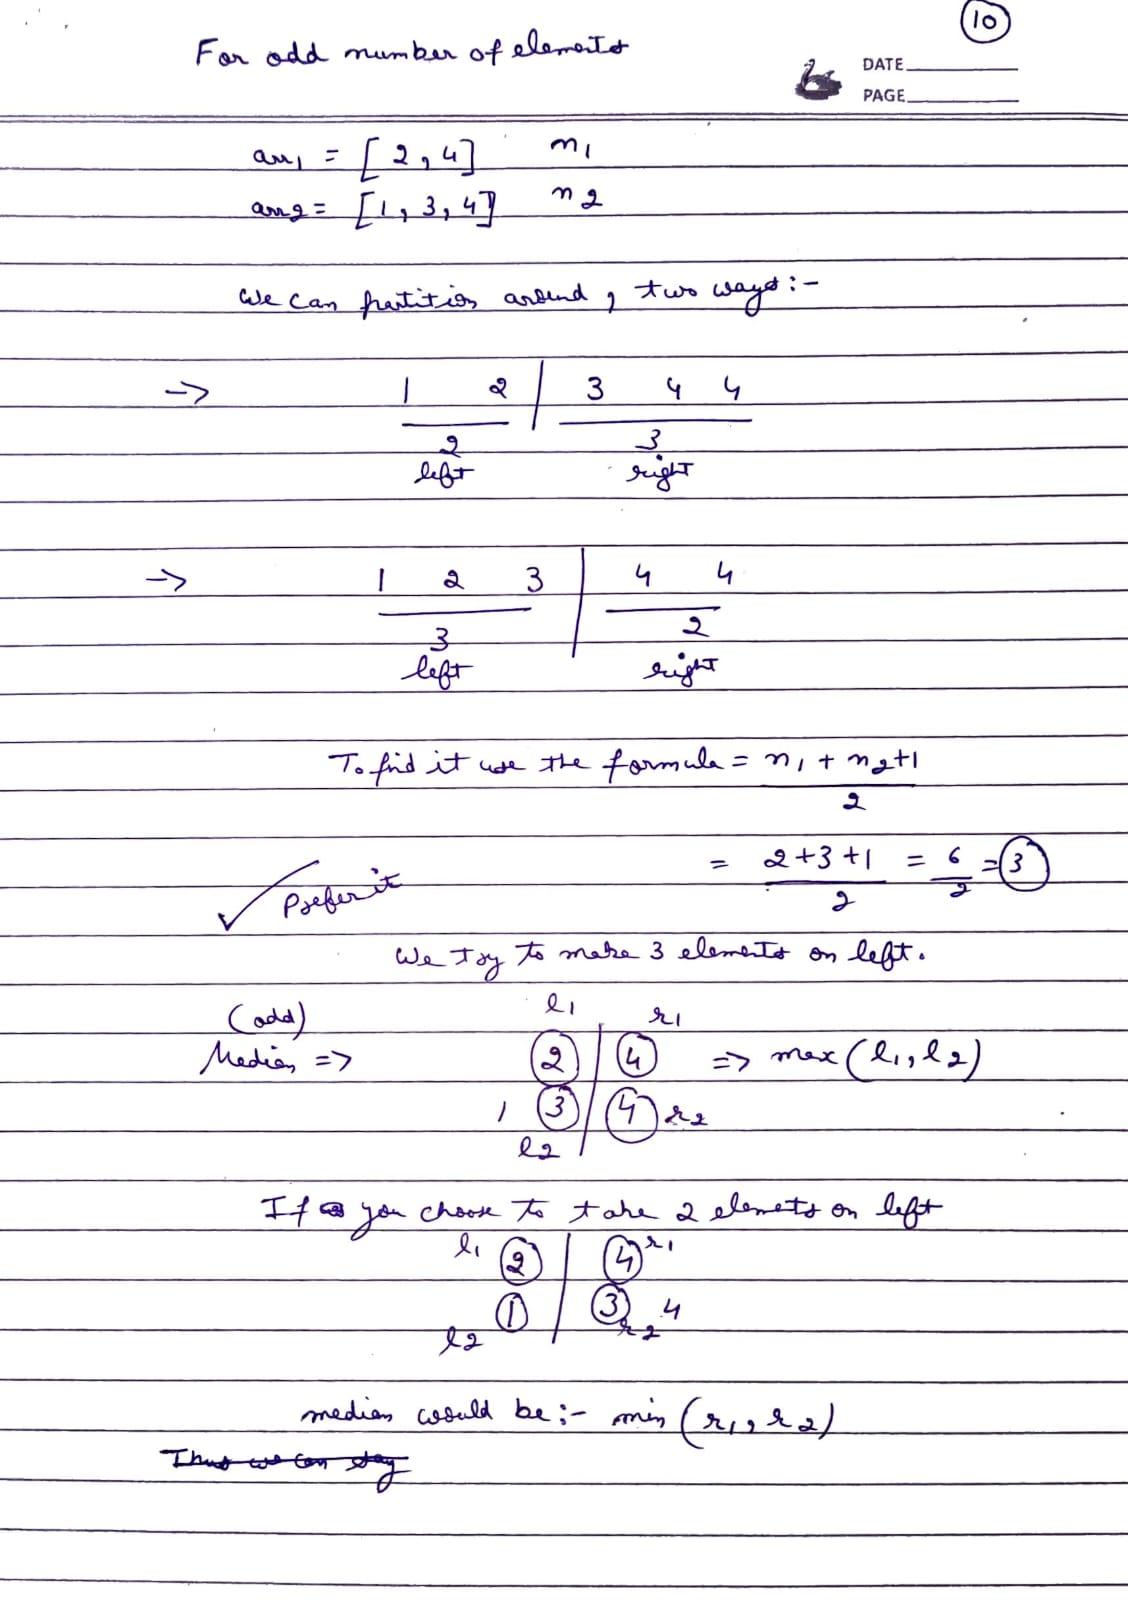 10
For odd number of elements
DATE
PAGE
arr1 = [2, 4] n1
arr2 = [1, 3, 4] n2
We can partition around, two ways:-
-> 1 2 | 3 4 4
2 3
left right
-> 1 2 3 | 4 4
3 2
left right
To find it use the formula = n1 + n2+1
2
= 2+3+1 = 6 = 3
2 2
Prefer it
We try to make 3 elements on left.
l1 r1
(odd)
Median => 2 | 4 => max(l1, l2)
1 3 | 4 r2
l2
If you choose to take 2 elements on left
l1 2 | 4 r1
1 | 3 4
l2 r2
median would be:- min(r1, r2)
Thus we can say